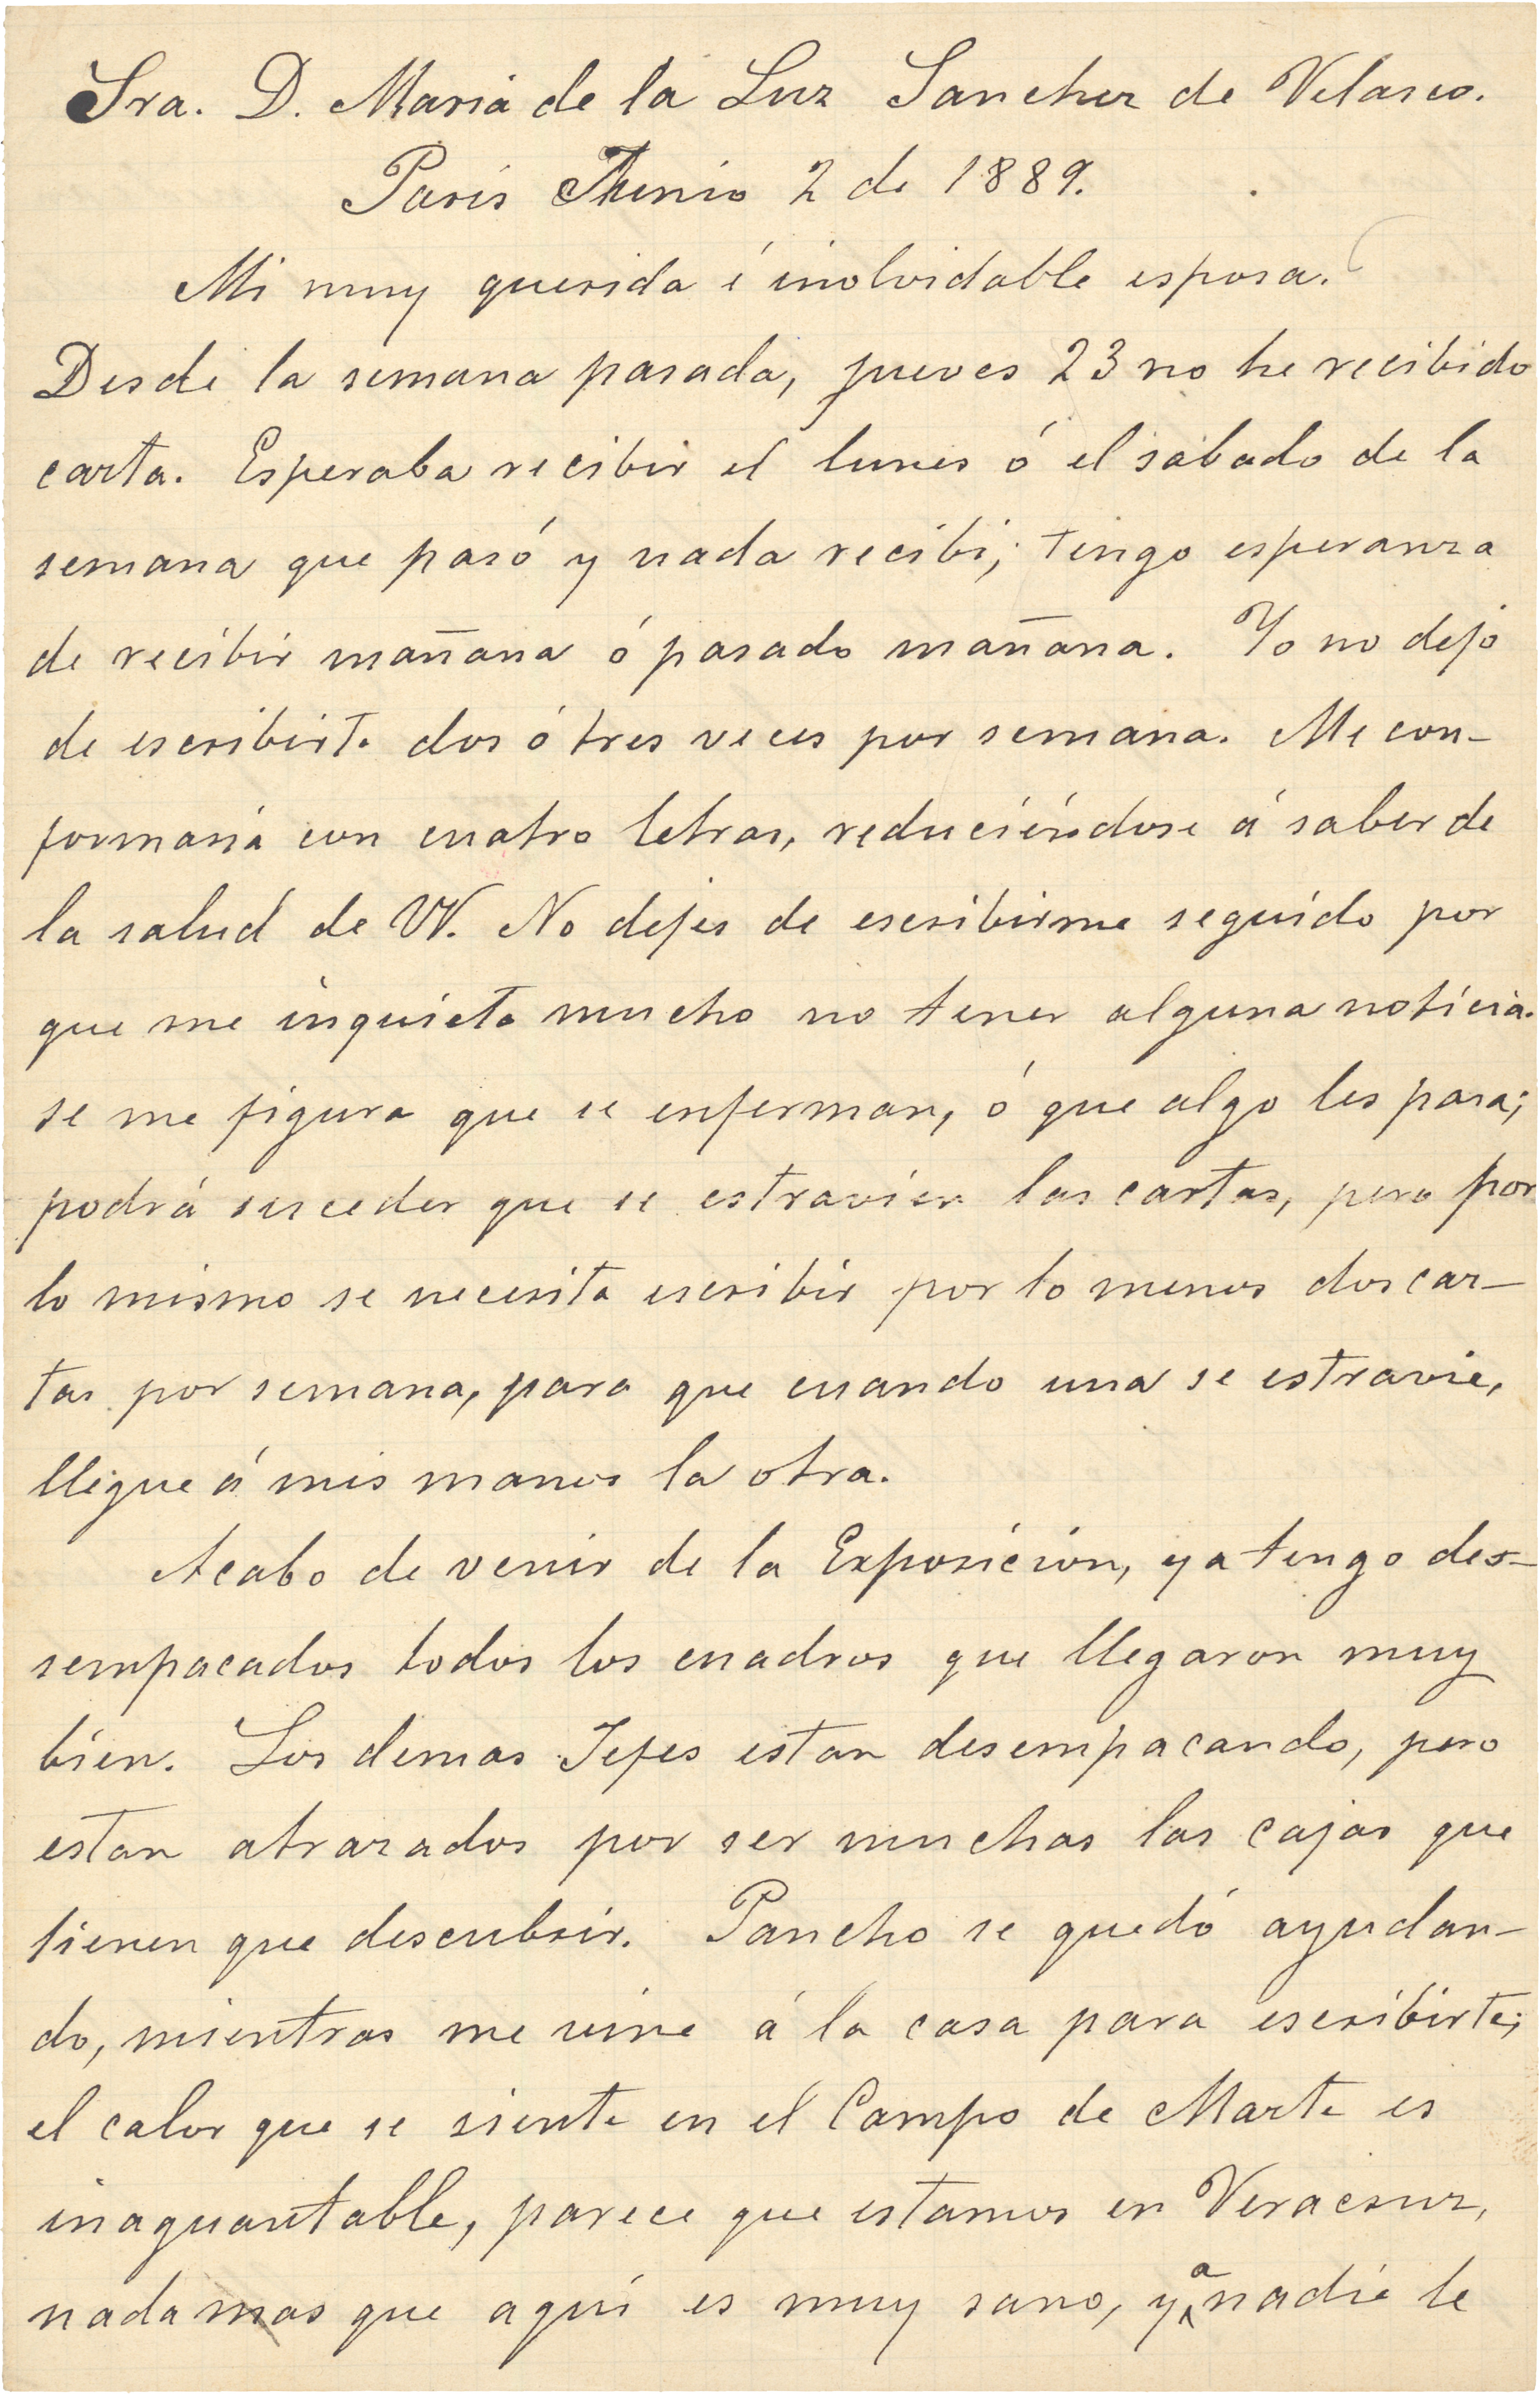 Sra. D. Maria de la Luz Sanchez de Velasco.
Paris Junio 2 de 1889.
Mi muy querida é inolvidable esposa.
Desde la semana pasada, jueves 23 no he recibido
carta. Esperaba recibir el lunes ó el sábado de la
semana que pasó y nada recibi; tengo esperanza
de recibir mañana ó pasado mañana. Yo no dejo
de escribirte dos ó tres veces por semana. Me con-
formaria con cuatro letras, reduciéndose á saber de
la salud de VV. No dejes de escribirme seguido por
que me inquieta mucho no tener alguna noticia.
se me figura que se enferman, ó que algo les pasa;
podrá suceder que se estravien las cartas, pero por
lo mismo se necesita escribir por lo menos dos car-
tas por semana, para que cuando una se estravie,
llegue á mis manos la otra.
Acabo de venir de la Exposicion, ya tengo des-
sempacados todos los cuadros que llegaron muy
bien. Los demas Jefes estan desempacando, pero
estan atrazados por ser muchas las cajas que
tienen que descubrir. Pancho se quedó ayudan-
do, mientras me vine á la casa para escribirte;
el calor que se siente en el Campo de Marte es
inaguantable, parece que estamos en Veracruz,
nada mas que aquí es muy sano, y a nadie le